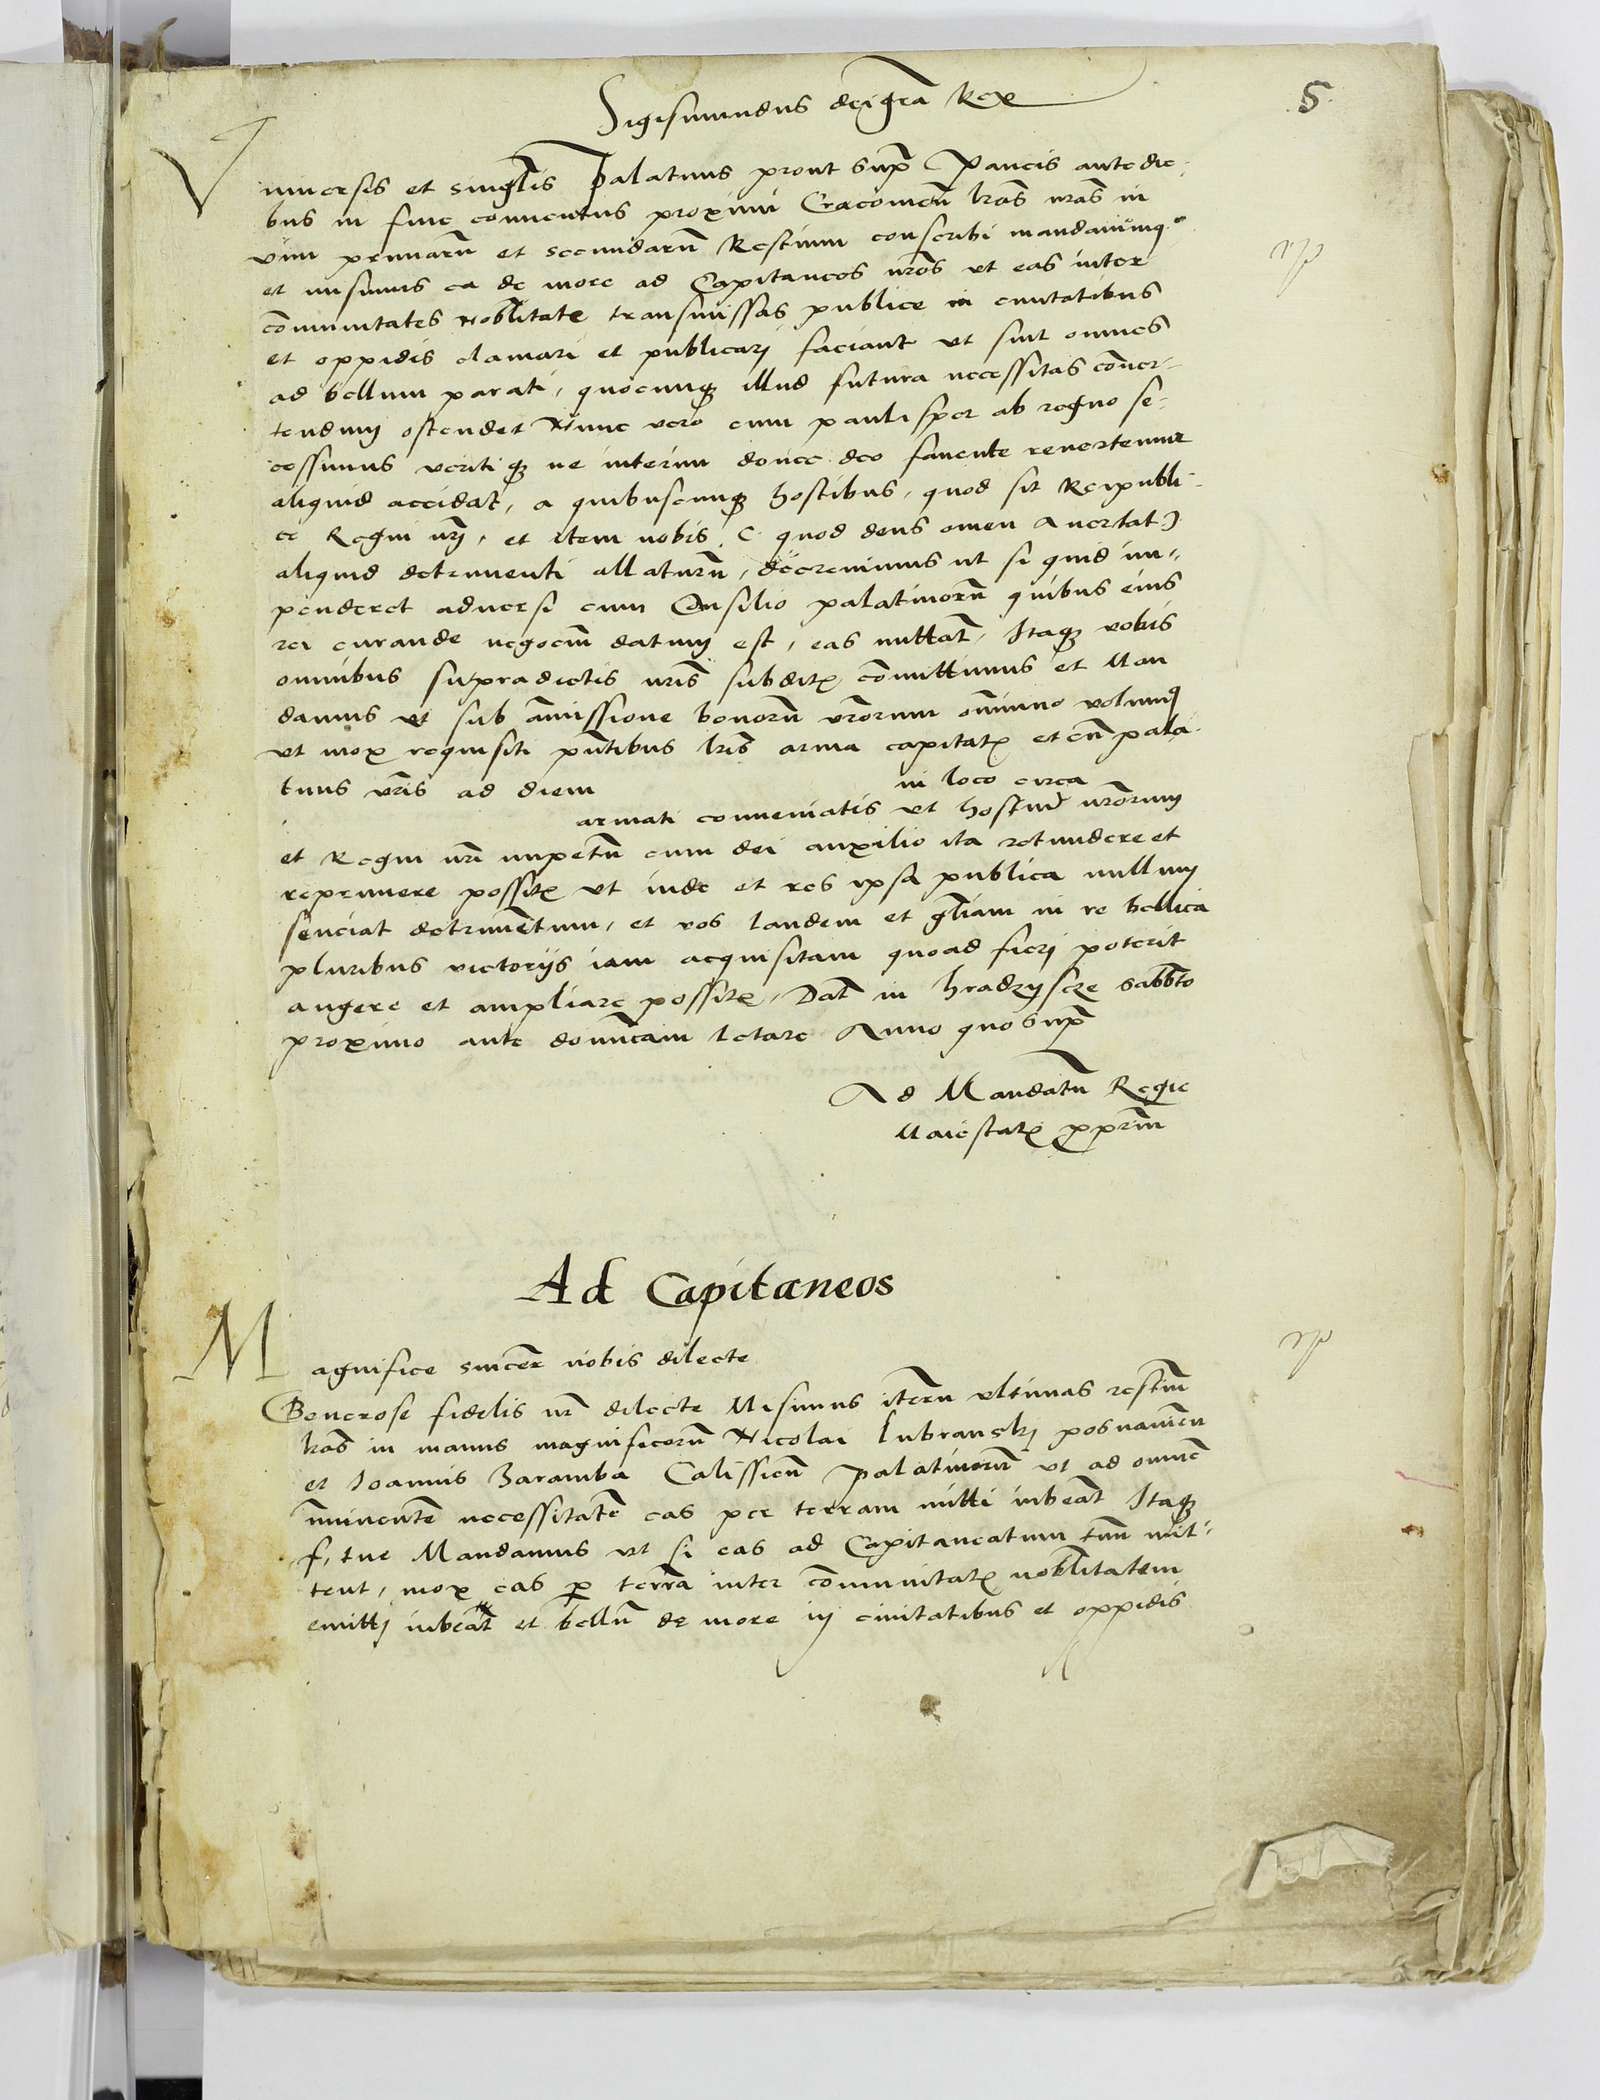 5
Sigismundus dei gra Rex
Vniuersis et singlis Palatinis prout supra Paucis ante die-
bus in fine conuentus proximi Cracouien lras nras in
vim primaru et secundaru Restium conscribi mandauimus
et misimus ea de more ad Capitaneos nros vt eas inter
comunitates Nobilitate transmissas publice in ciuitatibus
et oppidis clamari et publicari faciant vt sint omnes
ad bellum parati, quocunq illud futura necessitas conuer-
tendum ostendet Nunc vero cum paulisper ab regno se-
cessimus veritiq ne interim donec deo fauente reuertemur
aliquid accidat, a quibuscunq hostibus, quod sit Reipubli-
ce Regni nri, et item nobis (quod deus omen Auertat)
aliquid detrimenti allaturu, decreuimus ut si quid im-
penderet aduersi cum Consilio palatinoru quibus eius
rei curande negociu datum est, eas mittat, Itaq vobis
omnibus supradictis nris subditis comittimus et Man
damus et sub amissione bonoru vrorum omnino volumus
ut mox requisiti pntibus lris arma capitatis et cu pala-
tinis vris ad diem in loco circa
armati conueniatis ut hostium nrorum
et Regni nri impetu cum dei auxilio ita retundere et
reprimere possitis vt inde et res ipsa publica nullum
senciat detrimetum, et vos laudem et gliam in re bellica
pluribus victorijs iam acquisitam quoad fieri poterit
augere et ampliare possitis, Dat in hradzyscze sabbto
proximo ante dominicam letare Anno quo supra
Ad Mandatu Regie
Maiestatis ppriu
Ad Capitaneos
Magnifice sincere nobis dilecte
Generose fidelis nr dilecte Misimus iteru vltimas restiu
lras in manus magnificoru Nicolai Lubranski posnanien
et Ioannis Zaramba Calissien palatinoru vt ad omne
imminente necessitate eas per terram mitti iubeat Itaq
f, tue Mandamus vt si eas ad Capitaneatum tuu mit-
tent, mox eas per terra inter comunitatis nobilitatem
emitti iubeat et bellu de more in ciuitatibus et oppidis